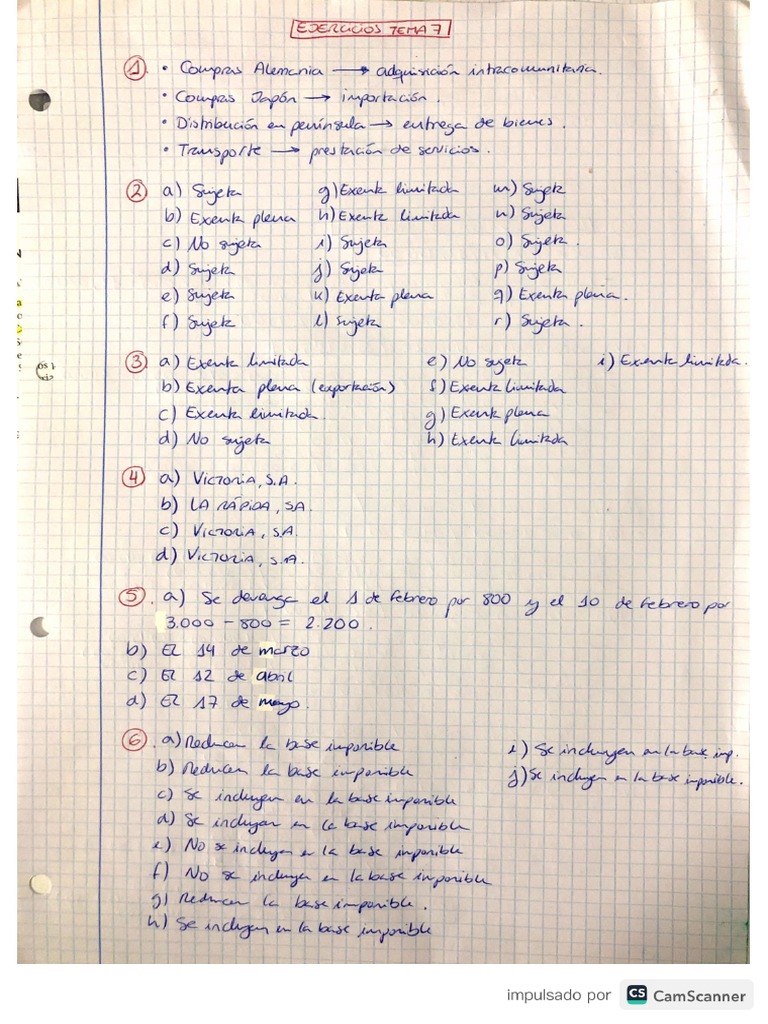 EJERCICIOS TEMA 7
1. • Compras Alemania → adquisición intracomunitaria.
• Compras Japón → importación.
• Distribución en península → entrega de bienes.
• Transporte → prestación de servicios.
2 a) Sujeta g) Exenta limitada m) Sujeta
b) Exenta plena h) Exenta limitada n) Sujeta
c) No sujeta i) Sujeta o) Sujeta.
d) Sujeta j) Sujeta p) Sujeta
e) Sujeta k) Exenta plena q) Exenta plena.
f) Sujeta l) Sujeta r) Sujeta.
3 a) Exenta limitada e) No sujeta i) Exenta limitada.
b) Exenta plena (exportación) f) Exenta limitada
c) Exenta limitada. g) Exenta plena
d) No sujeta h) Exenta limitada
4 a) VICTORIA, S.A.
b) LA RÁPIDA, SA
c) VICTORIA, S.A.
d) VICTORIA, S.A.
5. a) Se devenga el 1 de febrero por 800 y el 10 de febrero por
3.000 - 800 = 2.200.
b) El 14 de marzo
c) El 12 de abril
d) El 17 de mayo.
6. a) Reducen la base imponible i) Se incluyen en la base imp.
b) Reducen la base imponible j) Se incluyen en la base imponible.
c) Se incluyen en la base imponible
d) Se incluyen en la base imponible
e) No se incluyen en la base imponible
f) No se incluyen en la base imponible
g) Reducen la base imponible.
h) Se incluyen en la base imponible
impulsado por CS CamScanner